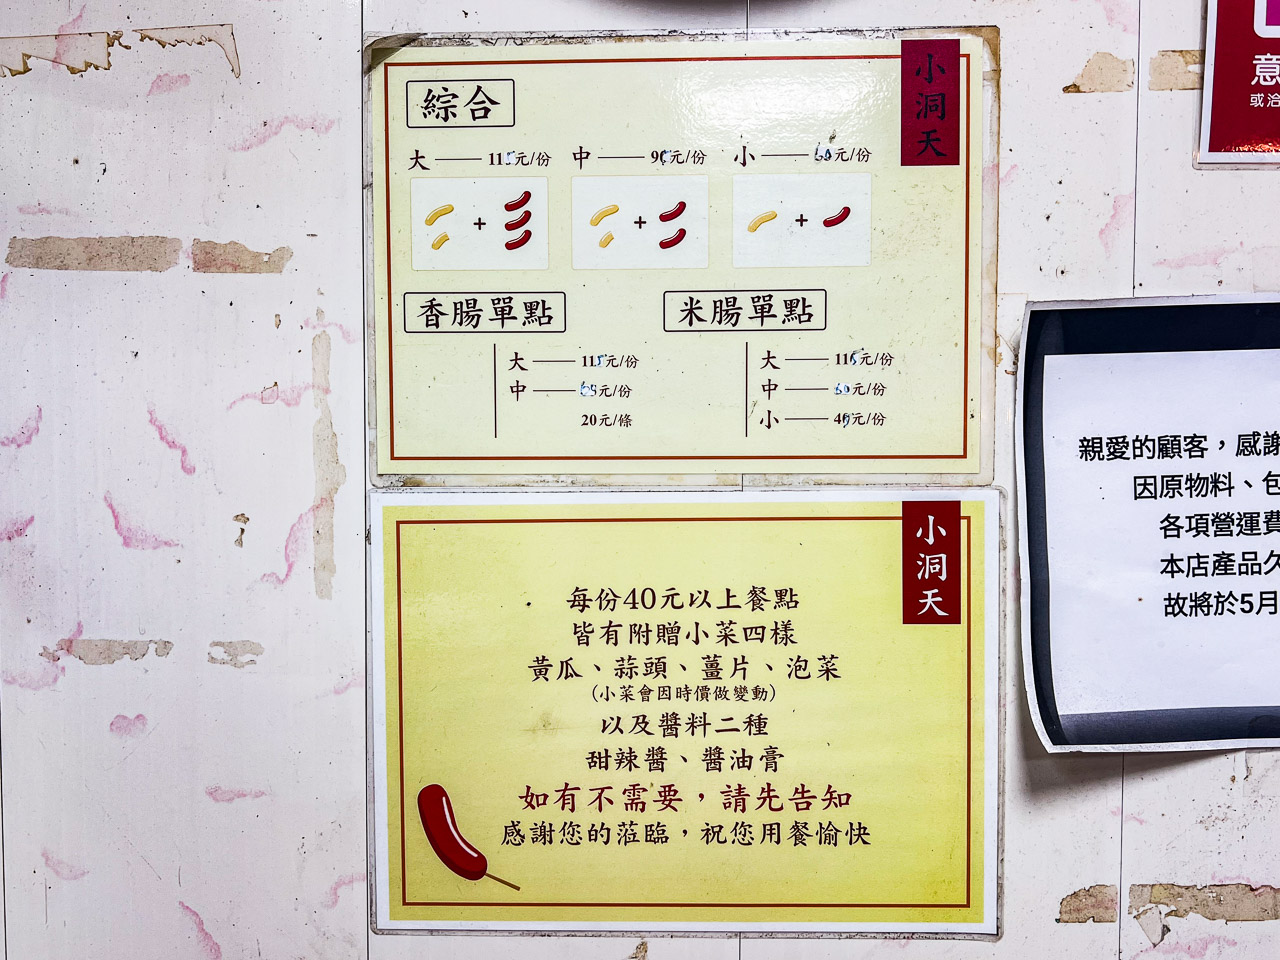 小洞天
綜合
大 115元/份 中 90元/份 小 60元/份
香腸單點
大 115元/份
中 65元/份
20元/條
米腸單點
大 元/份
中 60元/份
小 元/份
小洞天
每份40元以上餐點
皆有附贈小菜四樣
黃瓜、蒜頭、薑片、泡菜
(小菜會因時價做變動)
以及醬料二種
甜辣醬、醬油膏
如有不需要，請先告知
感謝您的蒞臨，祝您用餐愉快
意
或洽
親愛的顧客，感謝
因原物料、包
各項營運費
本店產品久
故將於5月